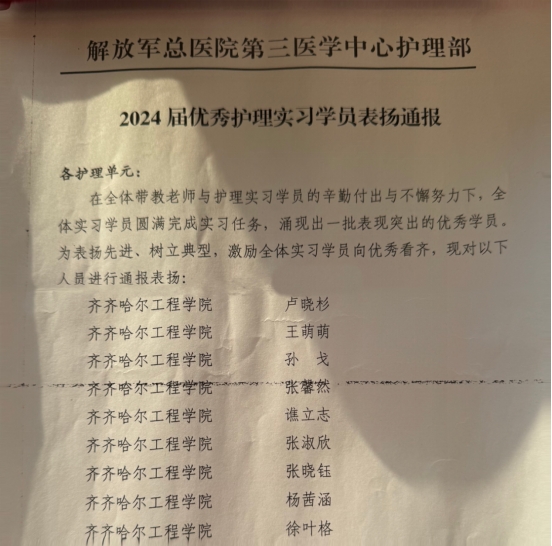 解放军总医院第三医学中心护理部
2024届优秀护理实习学员表扬通报
各护理单元：
在全体带教老师与护理实习学员的辛勤付出与不懈努力下，全
体实习学员圆满完成实习任务，涌现出一批表现突出的优秀学员。
为表扬先进、树立典型，激励全体实习学员向优秀看齐，现对以下
人员进行通报表扬：
齐齐哈尔工程学院 卢晓杉
齐齐哈尔工程学院 王萌萌
齐齐哈尔工程学院 孙 戈
齐齐哈尔工程学院 张馨然
齐齐哈尔工程学院 谯立志
齐齐哈尔工程学院 张淑欣
齐齐哈尔工程学院 张晓钰
齐齐哈尔工程学院 杨茜涵
齐齐哈尔工程学院 徐叶格